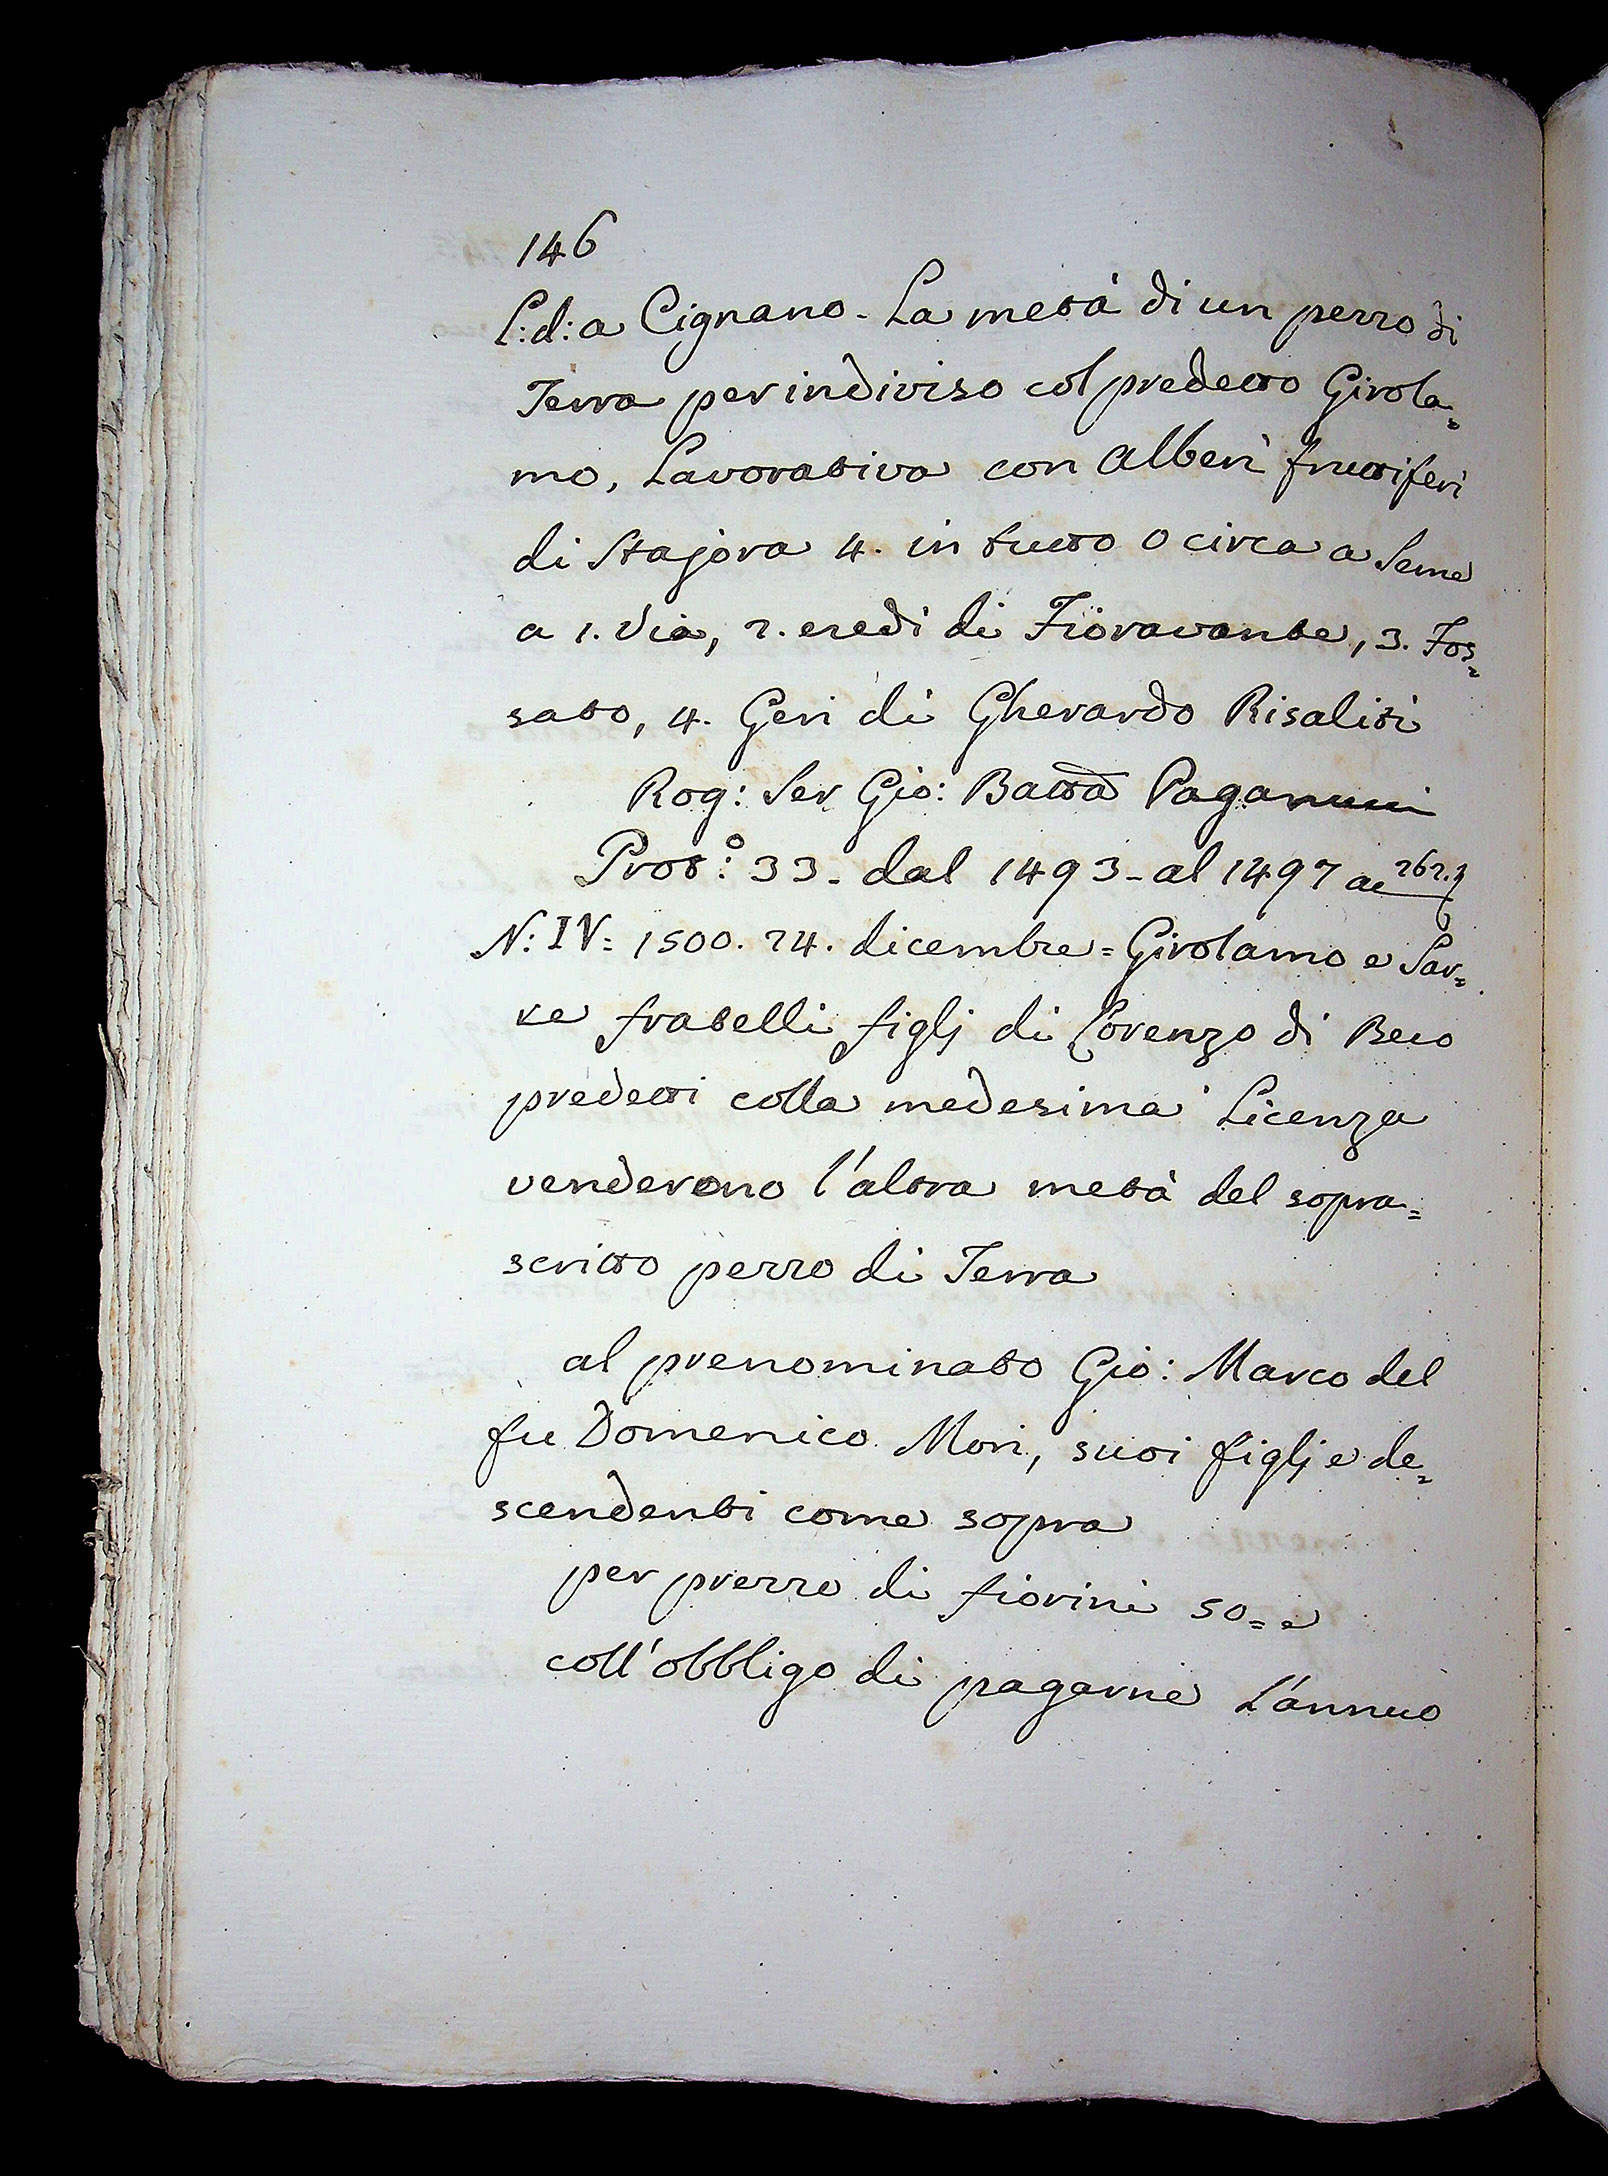 146
l: d: a Cignano - La metà di un pezzo di
Terra per indiviso col predetto Girola=
mo, Lavorativa con Alberi fruttiferi
di Stajora 4. in tutto o circa a Seme
a 1. Via, 2. eredi di Fioravante, 3. Fos=
sato, 4. Geri di Gherardo Risaliti
Rog: Ser Gio: Batta Paganucci
Prot:º 33 - dal 1493 - al 1497 ac 262.
N: IV= 1500. 24. dicembre = Girolamo e San=
te fratelli figlj di Lorenzo di Beco
predetti colla medesima Licenza
venderono l'altra metà del sopra=
scritto pezzo di Terra
al prenominato Gio: Marco del
fu Domenico Mori, suoi figlj e de=
scendenti come sopra
per prezzo di fiorini 50= e
coll'obbligo di pagarne L'annuo